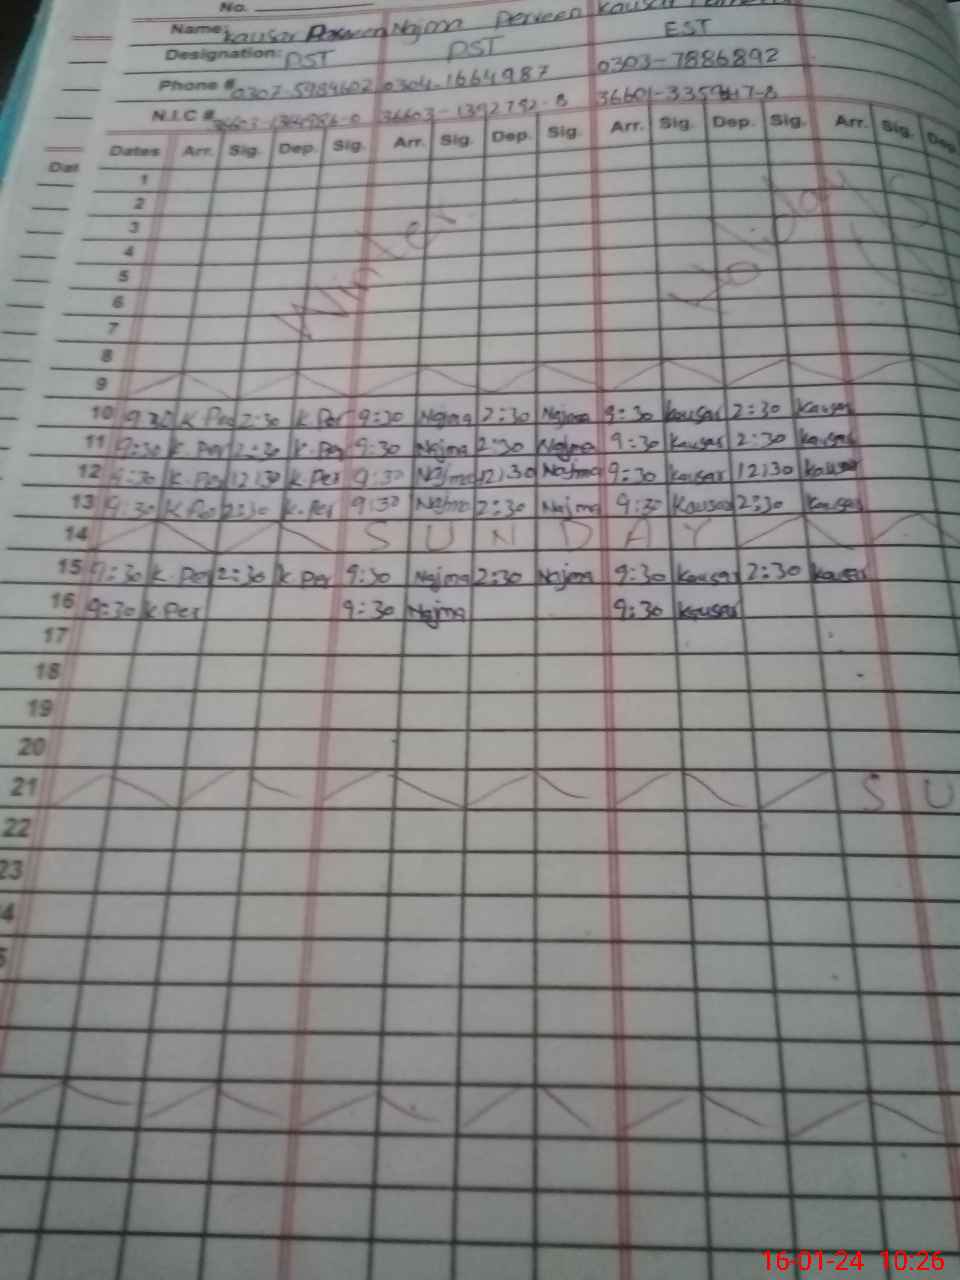 No.
Name: Kausar Parveen Najma Perveen Kausar
Designation: PST PST EST
Phone # 0307-5984602 0304-1664987 0303-7886892
N.I.C #
Dates Arr. Sig. Dep. Sig. Arr. Sig. Dep. Sig. Arr. Sig. Dep. Sig. Arr. Sig. Dep.
Dat
1
2
3
4
5
6
7
8
Winter
9
10 9:30 K.Per 2:30 K.Per 9:30 Najma 2:30 Najma 9:30 Kausar 2:30 Kausar
11 9:30 K.Per 2:30 K.Per 9:30 Najma 2:30 Najma 9:30 Kausar 2:30 Kausar
12 9:30 K.Per 12:30 K.Per 9:30 Najma 12:30 Najma 9:30 Kausar 12:30 Kausar
13 9:30 K.Per 2:30 K.Per 9:30 Najma 2:30 Najma 9:30 Kausar 2:30 Kausar
14 S U N D A Y
15 9:30 K.Per 2:30 K.Per 9:30 Najma 2:30 Najma 9:30 Kausar 2:30 Kausar
16 9:30 K.Per 9:30 Najma 9:30 Kausar
17
18
19
20
21 S U
22
23
4
5
16-01-24 10:26